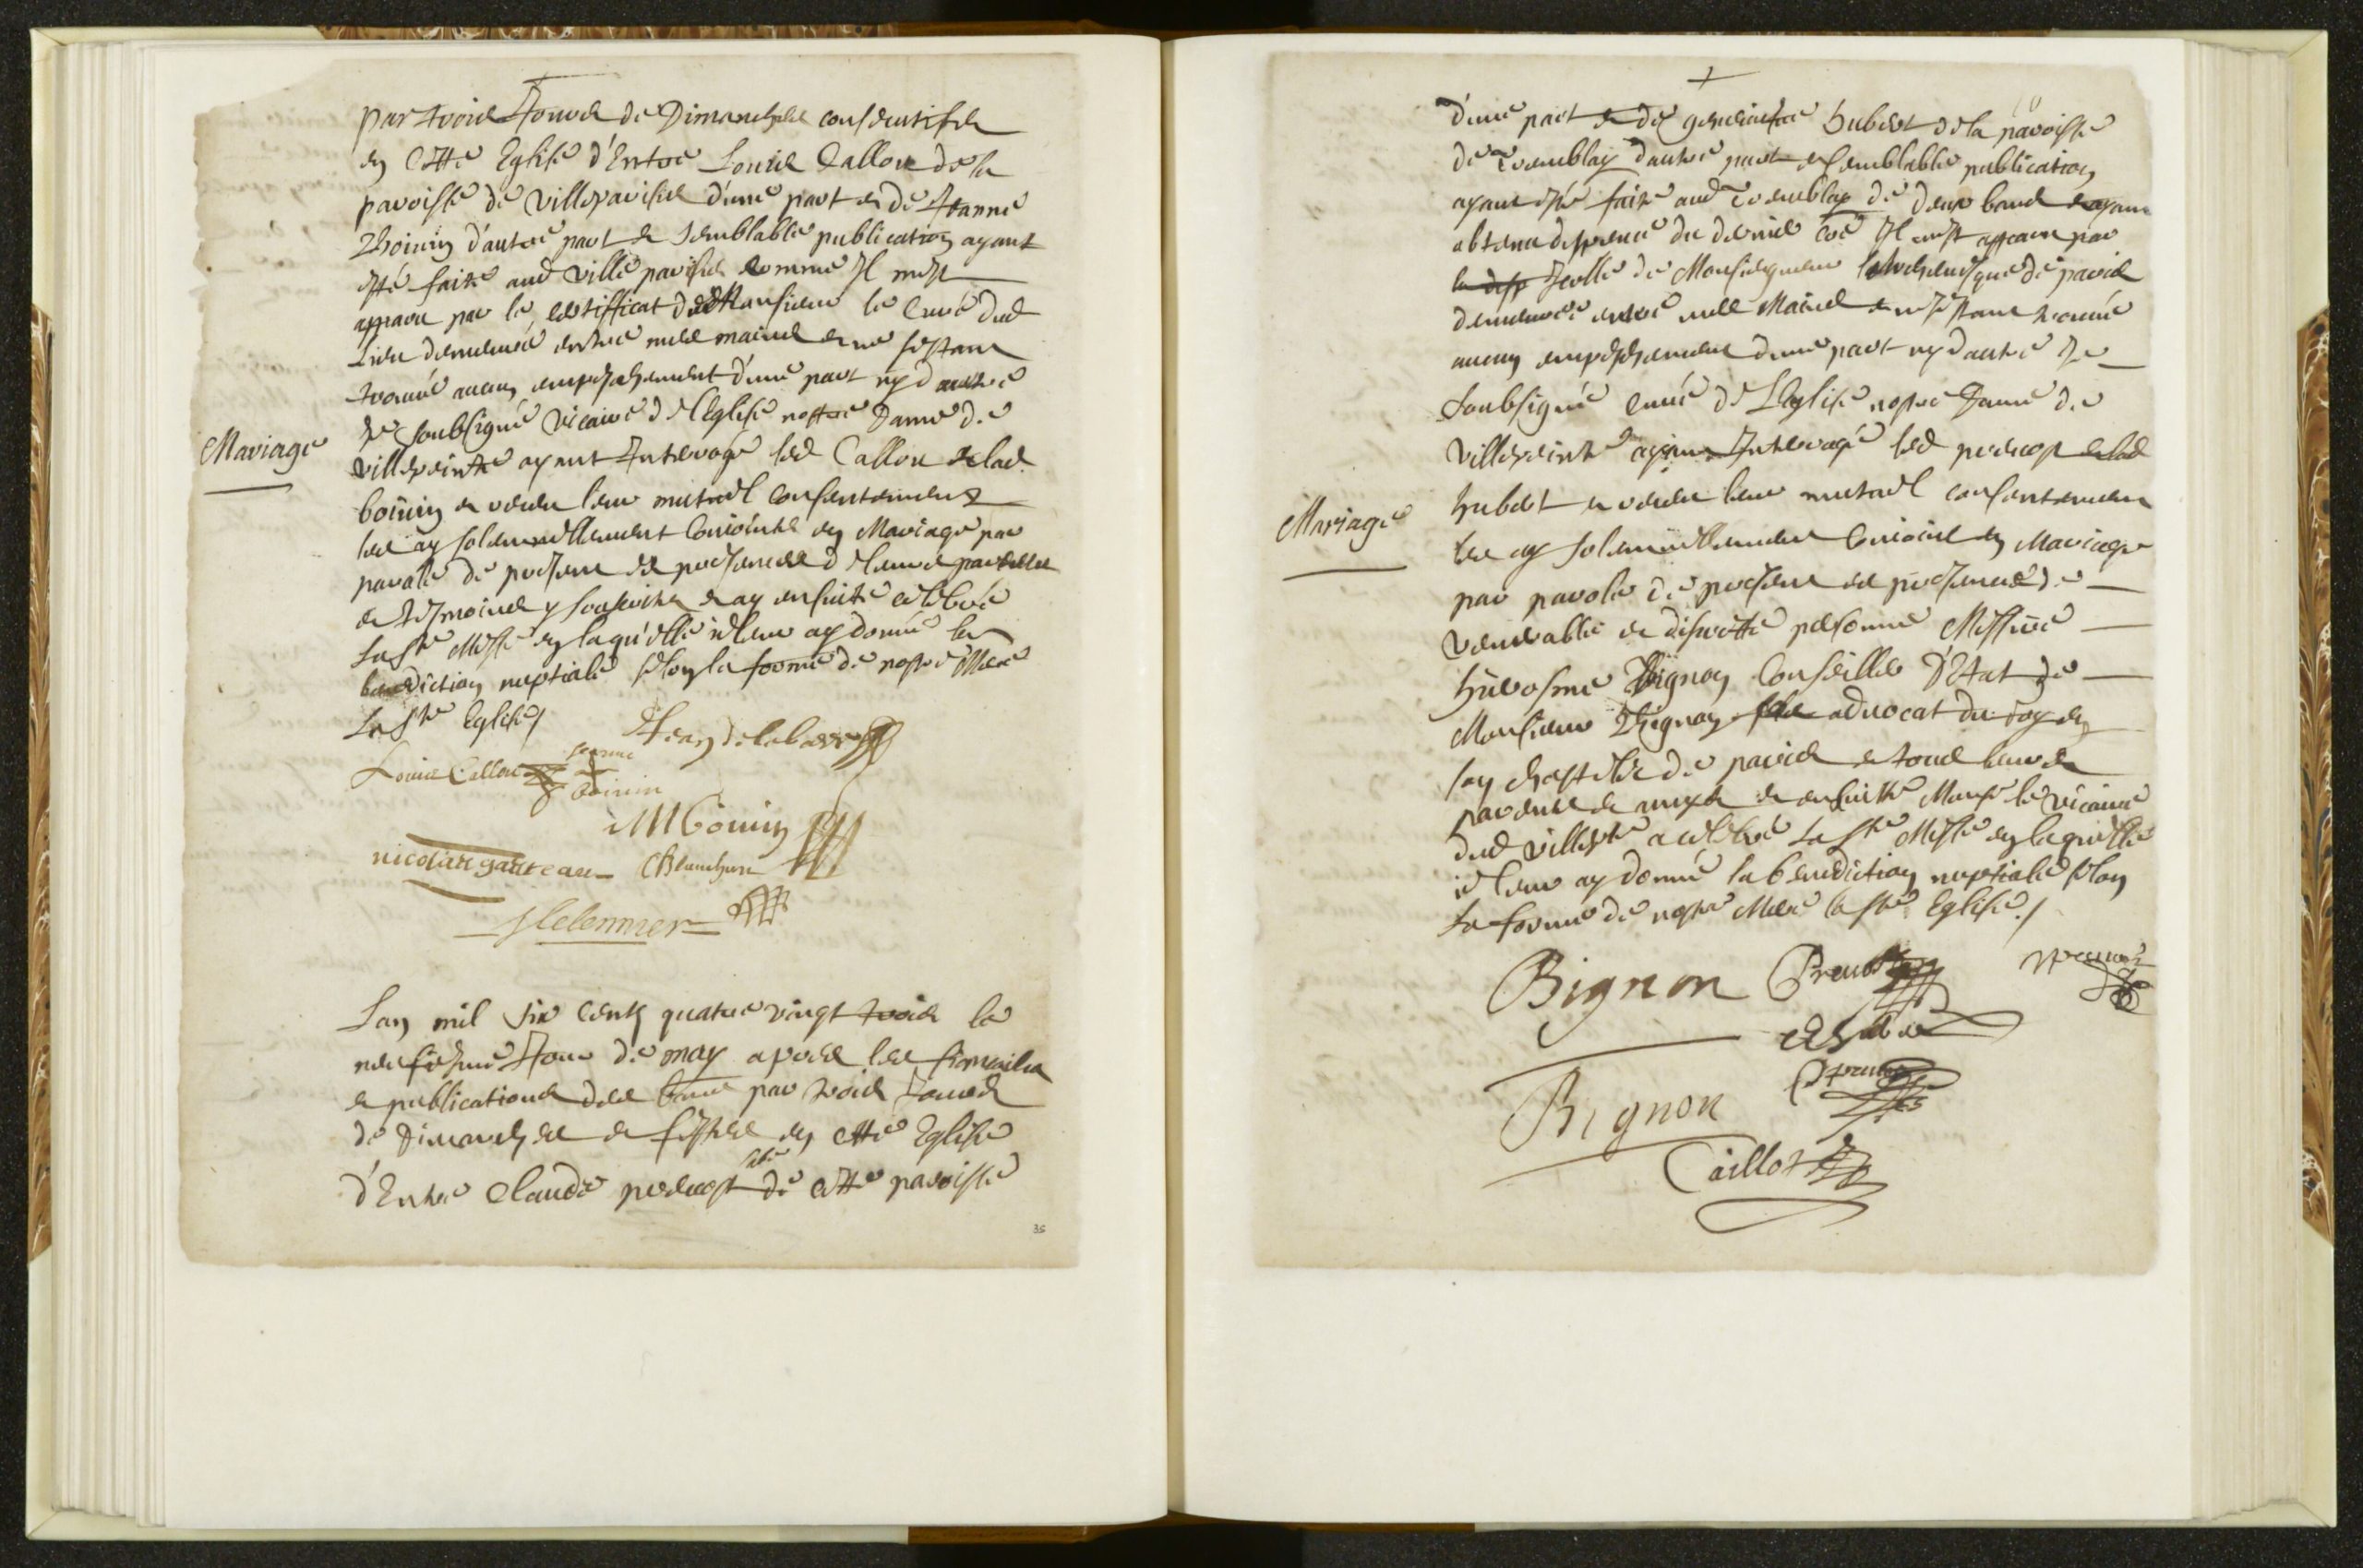 par trois Jours de Dimanches consecutifs
en cette Eglise d'Entre Louis Callou de la
paroisse de villeparisis d'une part et de Jeanne
Boiuin d'autre part et semblable publication ayant
esté faite aud ville parisis comme Il m'est
apparu par le certifficat de Monsieur le Curé dud
Lieu demeuré entre mes mains et ne s'estant
trouué aucun empeschement d'une part ny d'autre
Je soubsigné vicaire de l'Eglise nostre Dame de
Mariage
villepeinte ayant Interogé led Callou et lad
boiuin et receu leur mutuel consentement
les ay solemnellement conioints en Mariage par
parolle de present es presences de leurs parents
et tesmoins y souscrits et ay ensuite celebré
La ste Messe en laquelle ie leur ay donné la
benediction nuptiale selon la forme de nostre Mere
La ste Eglise
Jean delabarre
Louis Callou Jeanne
boiuin
M Boiuin
nicolas gasteau Blancheure
Lan mil six cents quatre vingt trois le
neufiesme Jour de may apres les fiancailles
et publications des bans par trois Jours
de Dimanches et festes en cette Eglise
d'Entre Claude preuost de cette paroisse
d'une part et de geneuiefue hubert de la paroisse
de Tremblay d'autre part et semblable publication
ayant esté faite aud Tremblay de deux bans et ayant
obtenu dispense du dernier Il m'est apparu par
la disp Icelle de Monseigneur l'Archeuesque de paris
demeurée entre mes Mains et ne s'estant trouué
aucun empeschement d'une part ny d'autre Je
Soubsigné Curé de L'Eglise nostre Dame de
Villepeinte ayant Interogé led preuost et lad
Mariage
hubert et receu leur mutuel consentement
les ay solemnellement conioint en Mariage
par parole de present es presences de
venerable et discrette personne Messire
hierosme Bignon Conseiller d'Etat de
Monsieur Bignon advocat du roy en
son chastelet de paris et tous leurs
parents et amys et ensuitte Monsr le vicaire
dud villepte a celebré La ste Messe en laquelle
ie leur ay donné la benediction nuptiale selon
La forme de nostre Mere la ste Eglise
Bignon Preuost
Bignon
Caillot